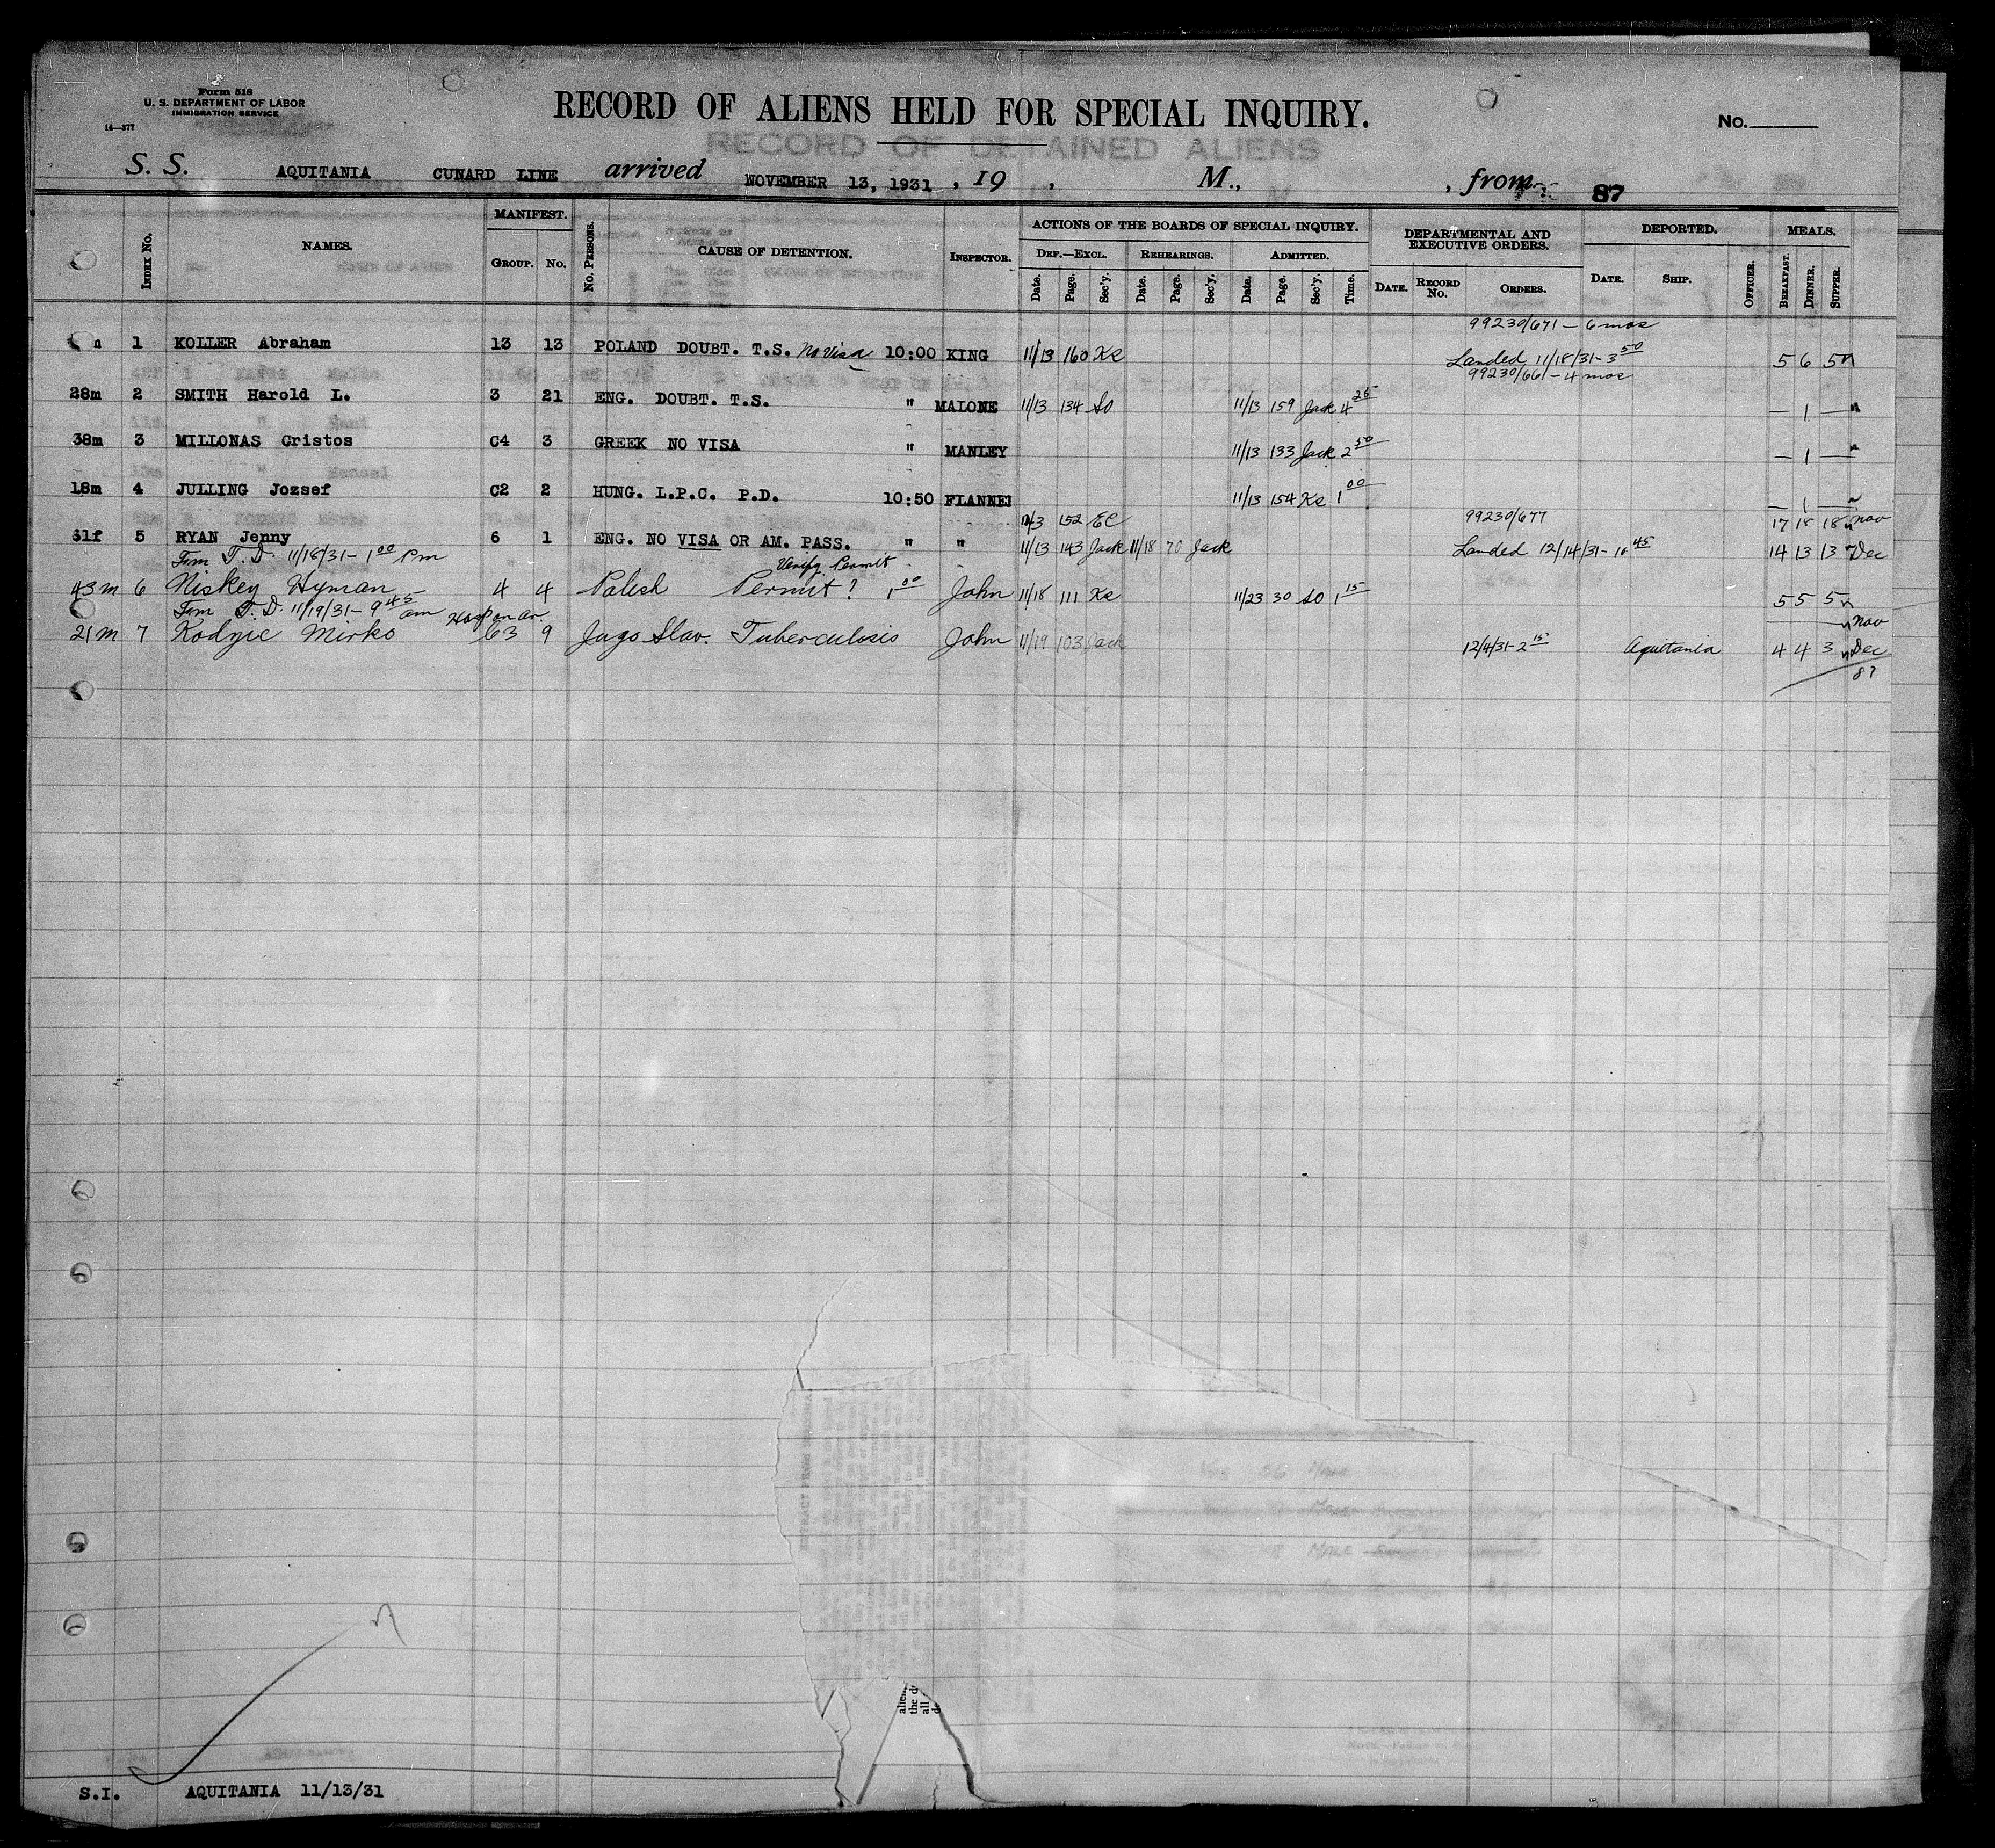 Form 518
U. S. DEPARTMENT OF LABOR
IMMIGRATION SERVICE
14—377
RECORD OF ALIENS HELD FOR SPECIAL INQUIRY.
No.
RECORD OF DETAINED ALIENS
S. S. AQUITANIA CUNARD LINE arrived NOVEMBER 13, 1931 , 19 , M., , from 87
INDEX NO. NAMES. MANIFEST. GROUP. NO. NO. PERSONS. CAUSE OF DETENTION. INSPECTOR. ACTIONS OF THE BOARDS OF SPECIAL INQUIRY. DEF.—EXCL. Date. Page. Sec'y. REHEARINGS. Date. Page. Sec'y. ADMITTED. Date. Page. Sec'y. Time. DEPARTMENTAL AND EXECUTIVE ORDERS. DATE. RECORD NO. ORDERS. DEPORTED. DATE. SHIP. OFFICER. MEALS. BREAKFAST. DINNER. SUPPER.
99230/671 – 6 mos
1 KOLLER Abraham 13 13 POLAND DOUBT. T.S. No Visa 10:00 KING 11/13 160 Ke Landed 11/18/31 - 3 50 5 6 5
99230/661 – 4 mos
28m 2 SMITH Harold L. 3 21 ENG. DOUBT. T.S. " MALONE 11/13 134 SO 11/13 159 Jack 4 25 — 1 —
38m 3 MILLONAS Cristos C4 3 GREEK NO VISA " MANLEY 11/13 133 Jack 2 50 — 1 —
18m 4 JULLING Jozsef C2 2 HUNG. L.P.C. P.D. 10:50 FLANNE 11/13 154 Ke 1 00 — 1 —
152 EC 99230/677 17 18 18 Nov
61f 5 RYAN Jenny 6 1 ENG. NO VISA OR AM. PASS. " " 11/13 143 Jack 11/18 70 Jack Landed 12/14/31 - 10 45 14 13 13 Dec
Fim T. D. 11/18/31 - 1 00 Pm Verify Permit
43m 6 Niskey Hyman 4 4 Polish Permit ? 1 00 John 11/18 111 Ke 11/23 30 SO 1 15 5 5 5
Fim T. D. 11/19/31 - 9 45 am Hosp on ar. Nov
21m 7 Kodyic Mirko 63 9 Jugo Slav. Tuberculosis John 11/19 103 Jack 12/4/31 - 2 15 Aquitania 4 4 3 Dec
87
S.I. AQUITANIA 11/13/31